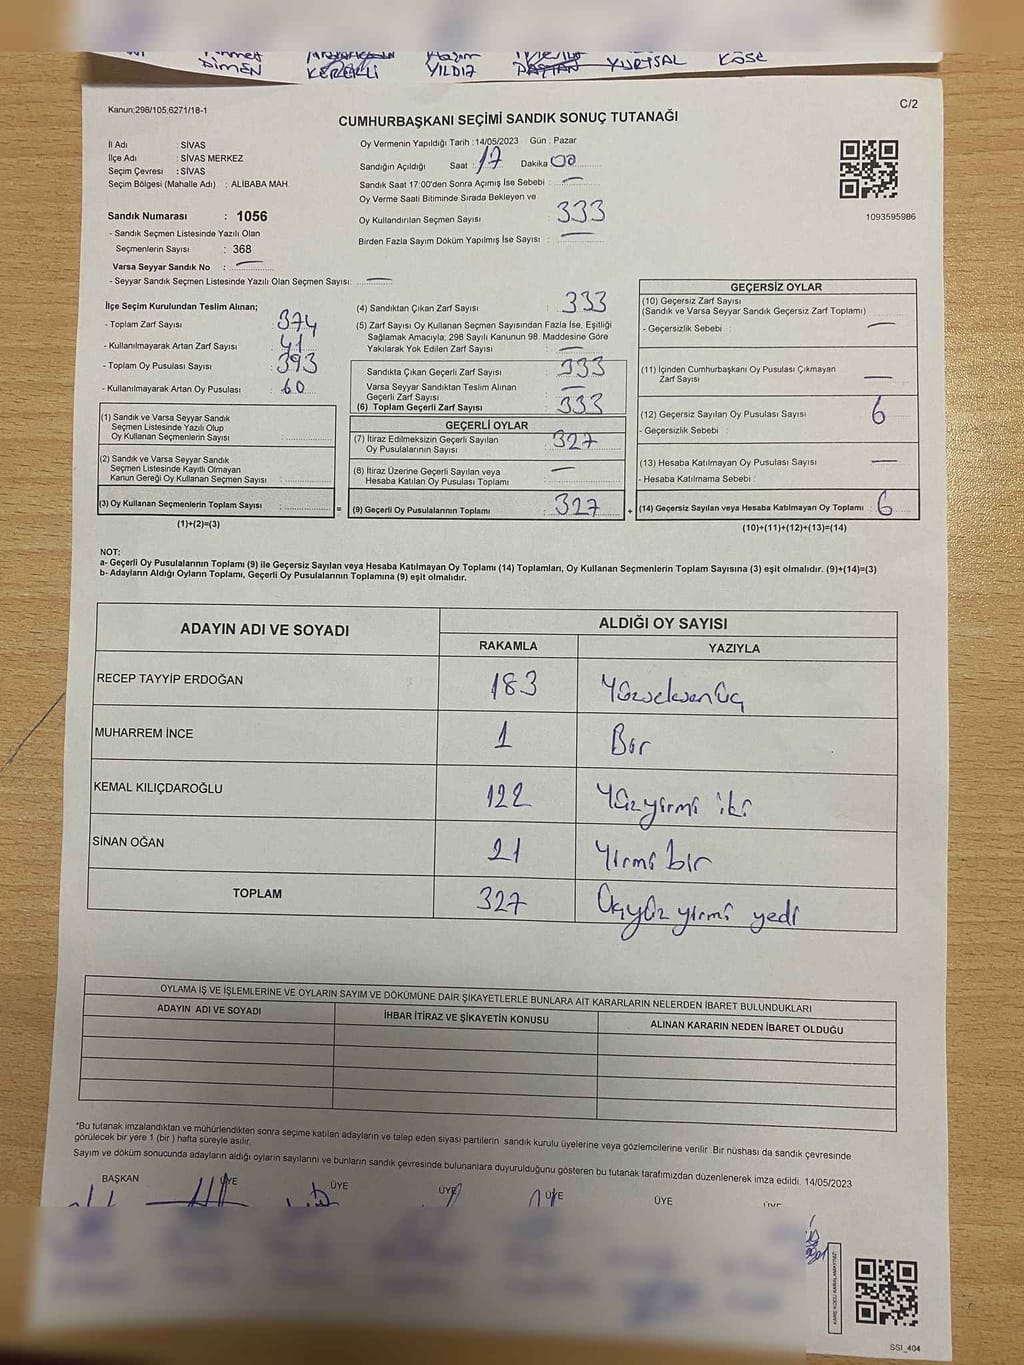 DİMEN KEREKLİ YILDIZ DAŞTAN YURTSAL KÖSE
Kanun;298/105;6271/18-1
C/2
CUMHURBAŞKANI SEÇİMİ SANDIK SONUÇ TUTANAĞI
İl Adı : SİVAS
İlçe Adı : SİVAS MERKEZ
Seçim Çevresi : SİVAS
Seçim Bölgesi (Mahalle Adı) : ALİBABA MAH.
Sandık Numarası : 1056
- Sandık Seçmen Listesinde Yazılı Olan
Seçmenlerin Sayısı : 368
Varsa Seyyar Sandık No : —
- Seyyar Sandık Seçmen Listesinde Yazılı Olan Seçmen Sayısı: —
Oy Vermenin Yapıldığı Tarih : 14/05/2023 Gün : Pazar
Sandığın Açıldığı Saat : 17 Dakika 00
Sandık Saat 17:00'den Sonra Açımış İse Sebebi : —
Oy Verme Saati Bitiminde Sırada Bekleyen ve
Oy Kullandırılan Seçmen Sayısı : 333
Birden Fazla Sayım Döküm Yapılmış İse Sayısı : —
1093595986
İlçe Seçim Kurulundan Teslim Alınan;
- Toplam Zarf Sayısı : 374
- Kullanılmayarak Artan Zarf Sayısı : 41
- Toplam Oy Pusulası Sayısı : 393
- Kullanılmayarak Artan Oy Pusulası : 60
(1) Sandık ve Varsa Seyyar Sandık
Seçmen Listesinde Yazılı Olup
Oy Kullanan Seçmenlerin Sayısı :
(2) Sandık ve Varsa Seyyar Sandık
Seçmen Listesinde Kayıtlı Olmayan
Kanun Gereği Oy Kullanan Seçmen Sayısı :
(3) Oy Kullanan Seçmenlerin Toplam Sayısı :
(1)+(2)=(3)
(4) Sandıktan Çıkan Zarf Sayısı : 333
(5) Zarf Sayısı Oy Kullanan Seçmen Sayısından Fazla İse, Eşitliği
Sağlamak Amacıyla; 298 Sayılı Kanunun 98. Maddesine Göre
Yakılarak Yok Edilen Zarf Sayısı : —
Sandıkta Çıkan Geçerli Zarf Sayısı : 333
Varsa Seyyar Sandıktan Teslim Alınan
Geçerli Zarf Sayısı : —
(6) Toplam Geçerli Zarf Sayısı : 333
GEÇERLİ OYLAR
(7) İtiraz Edilmeksizin Geçerli Sayılan
Oy Pusulalarının Sayısı : 327
(8) İtiraz Üzerine Geçerli Sayılan veya
Hesaba Katılan Oy Pusulası Toplamı : —
= (9) Geçerli Oy Pusulalarının Toplamı : 327
GEÇERSİZ OYLAR
(10) Geçersiz Zarf Sayısı
(Sandık ve Varsa Seyyar Sandık Geçersiz Zarf Toplamı)
- Geçersizlik Sebebi : —
(11) İçinden Cumhurbaşkanı Oy Pusulası Çıkmayan
Zarf Sayısı : —
(12) Geçersiz Sayılan Oy Pusulası Sayısı : 6
- Geçersizlik Sebebi :
(13) Hesaba Katılmayan Oy Pusulası Sayısı : —
- Hesaba Katılmama Sebebi :
+ (14) Geçersiz Sayılan veya Hesaba Katılmayan Oy Toplamı : 6
(10)+(11)+(12)+(13)=(14)
NOT:
a- Geçerli Oy Pusulalarının Toplamı (9) ile Geçersiz Sayılan veya Hesaba Katılmayan Oy Toplamı (14) Toplamları, Oy Kullanan Seçmenlerin Toplam Sayısına (3) eşit olmalıdır. (9)+(14)=(3)
b- Adayların Aldığı Oyların Toplamı, Geçerli Oy Pusulalarının Toplamına (9) eşit olmalıdır.
ADAYIN ADI VE SOYADI ALDIĞI OY SAYISI
RAKAMLA YAZIYLA
RECEP TAYYİP ERDOĞAN 183 Yüzseksenüç
MUHARREM İNCE 1 Bir
KEMAL KILIÇDAROĞLU 122 Yüzyirmi iki
SİNAN OĞAN 21 Yirmi bir
TOPLAM 327 Üçyüz yirmi yedi
OYLAMA İŞ VE İŞLEMLERİNE VE OYLARIN SAYIM VE DÖKÜMÜNE DAİR ŞİKAYETLERLE BUNLARA AİT KARARLARIN NELERDEN İBARET BULUNDUKLARI
ADAYIN ADI VE SOYADI İHBAR İTİRAZ VE ŞİKAYETİN KONUSU ALINAN KARARIN NEDEN İBARET OLDUĞU
*Bu tutanak imzalandıktan ve mühürlendikten sonra seçime katılan adayların ve talep eden siyasi partilerin sandık kurulu üyelerine veya gözlemcilerine verilir. Bir nüshası da sandık çevresinde
görülecek bir yere 1 (bir ) hafta süreyle asılır.
Sayım ve döküm sonucunda adayların aldığı oyların sayılarını ve bunların sandık çevresinde bulunanlara duyurulduğunu gösteren bu tutanak tarafımızdan düzenlenerek imza edildi. 14/05/2023
BAŞKAN ÜYE ÜYE ÜYE ÜYE ÜYE ÜYE
SSI_404